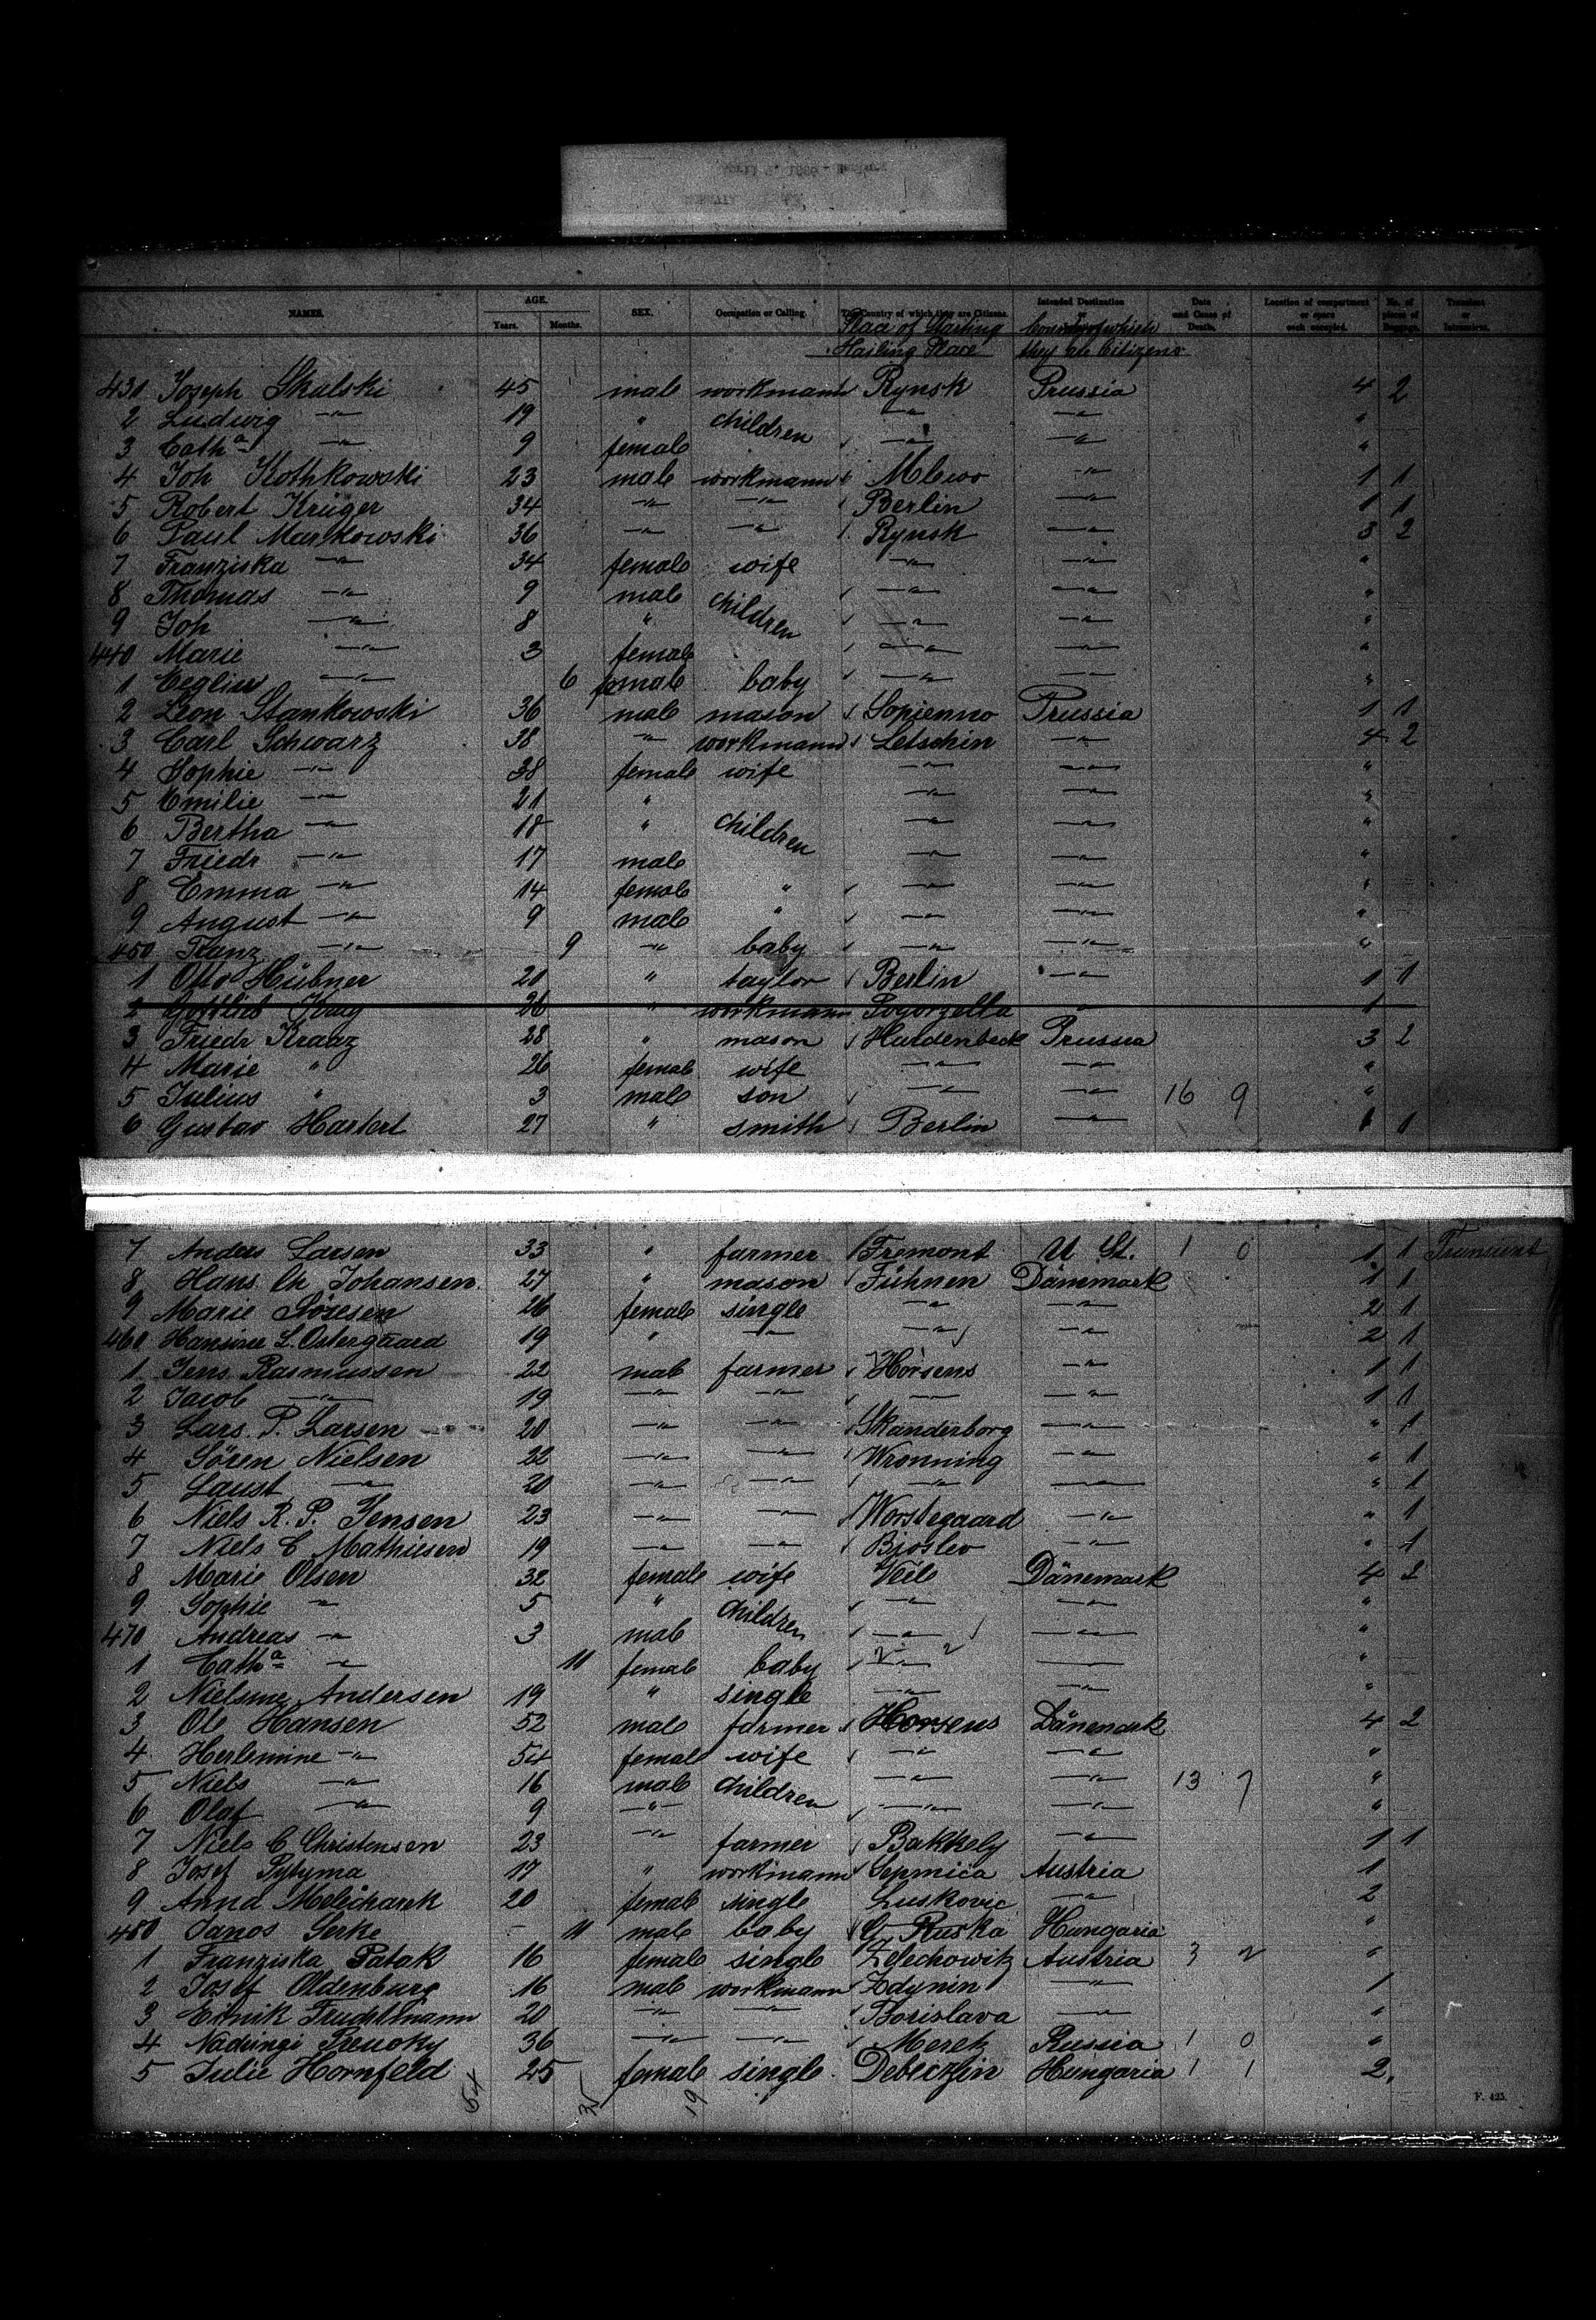 NAMES. AGE. SEX. Occupation or Calling. The Country of which they are Citizens. Intended Destination or Date and Cause of Death. Location of compartment or space each occupied. No. of pieces of Baggage. Transient or Intransient.
Years. Months. Place of Starting Country of which
Hailing Place they are Citizens
431 Joseph Skalski 45 male workmann Rynsk Prussia 4 2
2 Ludwig -"- 19 " children -"- -"- "
3 Cath a -"- 9 female -"- -"- "
4 Joh Kothkowski 23 male workmann Mlewo -"- 1 1
5 Robert Krüger 34 -"- -"- Berlin -"- 1 1
6 Paul Markowski 36 -"- -"- Rynsk -"- 3 2
7 Franziska -"- 34 female wife -"- -"- "
8 Thomas -"- 9 male children -"- -"- "
9 Joh -"- 8 " -"- -"- "
440 Marie -"- 3 female -"- -"- "
1 -"- 6 female baby -"- -"- "
2 Leon Stankowski 36 male mason Prussia 1 1
3 Carl Schwarz 38 -"- workmann Letschin -"- 4 2
4 Sophie -"- 38 female wife -"- -"- "
5 Emilie -"- 21 " -"- -"- "
6 Bertha -"- 18 " children -"- -"- "
7 Friedr -"- 17 male -"- -"- "
8 Emma -"- 14 female " -"- -"- "
9 August -"- 9 male " -"- -"- "
450 Franz -"- 9 -"- baby -"- -"- "
1 Otto Hübner 21 " taylor Berlin -"- 1 1
2 Gottlieb Krug 26 " workmann Pogorzella 1
3 Friedr Kraaz 28 " mason Hardenbeck Prussia 3 2
4 Marie " 26 female wife -"- -"- "
5 Julius " 3 male son -"- -"- 16 9 "
6 Gustav Hartert 27 " smith Berlin -"- 1 1
7 Anders Larsen 33 " farmer Fremont U St. 1 0 1 1 Transient
8 Hans Ch Johansen 27 " mason Fühnen Dänemark 1 1
9 Marie 26 female single -"- -"- 2 1
460 Hansine L. Ostergaard 19 " -"- -"- -"- 2 1
1 Jens Rasmussen 22 male farmer Horsens -"- 1 1
2 Jacob -"- 19 -"- -"- -"- -"- 1 1
3 Lars P. Larsen 20 -"- -"- Skanderborg -"- " 1
4 Sören Nielsen 22 -"- -"- Wronning -"- " 1
5 Laust -"- 20 -"- -"- -"- -"- " 1
6 Niels R. P. Jensen 23 -"- -"- Worstegaard -"- " 1
7 Niels C Mathiesen 19 -"- -"- -"- " 1
8 Marie Olsen 32 female wife Veile Dänemark 4 2
9 Sophie -"- 5 " children -"- -"- "
470 Andreas -"- 3 male -"- -"- "
1 Cath a -"- 11 female baby -"- -"- "
2 Nielsine Andersen 19 " single -"- -"- "
3 Ole Hansen 52 male farmer Horsens Dänemark 4 2
4 Herlemine -"- 54 female wife -"- -"- "
5 Niels -"- 16 male children -"- -"- 13 7 "
6 Olaf -"- 9 -"- -"- -"- "
7 Niels C Christensen 23 -"- farmer Bakkely -"- 1 1
8 Josef Pytyma 17 " workmann Austria 1
9 Anna 20 female single Luskovic -"- 2
480 Janos Gerke - 11 male baby G Ruska Hungaria "
1 Franziska Patak 16 female single Zelechowitz Austria 3 2 "
2 Josef Oldenburg 16 male workmann Zdynin -"- 1
3 Fruchtmann 20 -"- -"- Borislava -"- "
4 36 -"- -"- Meretz Russia 1 0 "
5 Julie Hornfeld 25 female single Debeczlin Hungaria 1 1 2
54 35 19
F. 425.